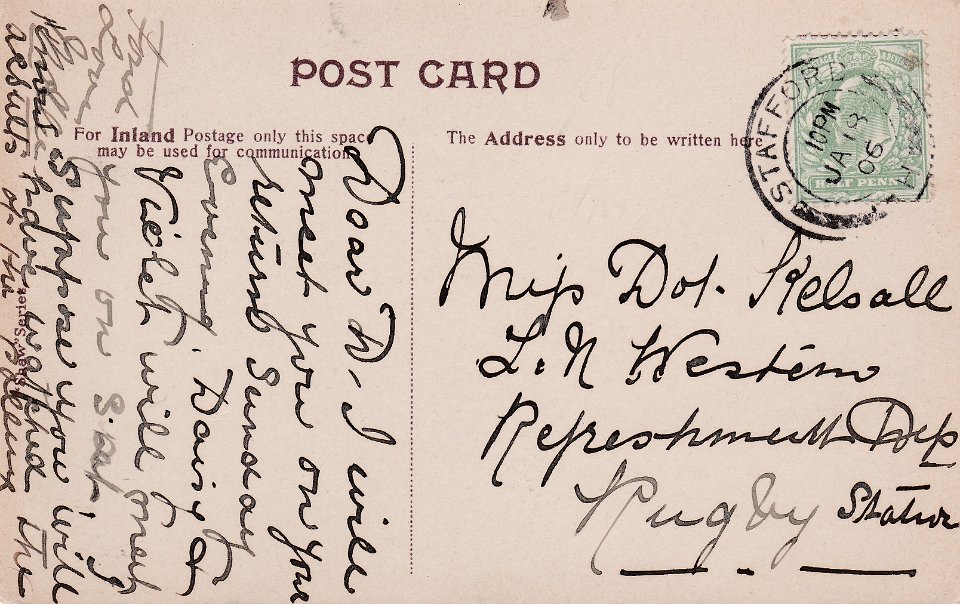 POST CARD
For Inland Postage only this space
may be used for communication.
The Address only to be written here
STAFFORD
10 PM
JA 18
06
HALF PENNY
Miss Dot. Kelsall
L. N Western
Refreshment Dep
Rugby Station
Dear D. I will
meet you on your
return Sunday
Evening. Daisy &
Violet will meet
you on S. at.
I suppose you will
have watched the
results of the
Fred
Love
Series